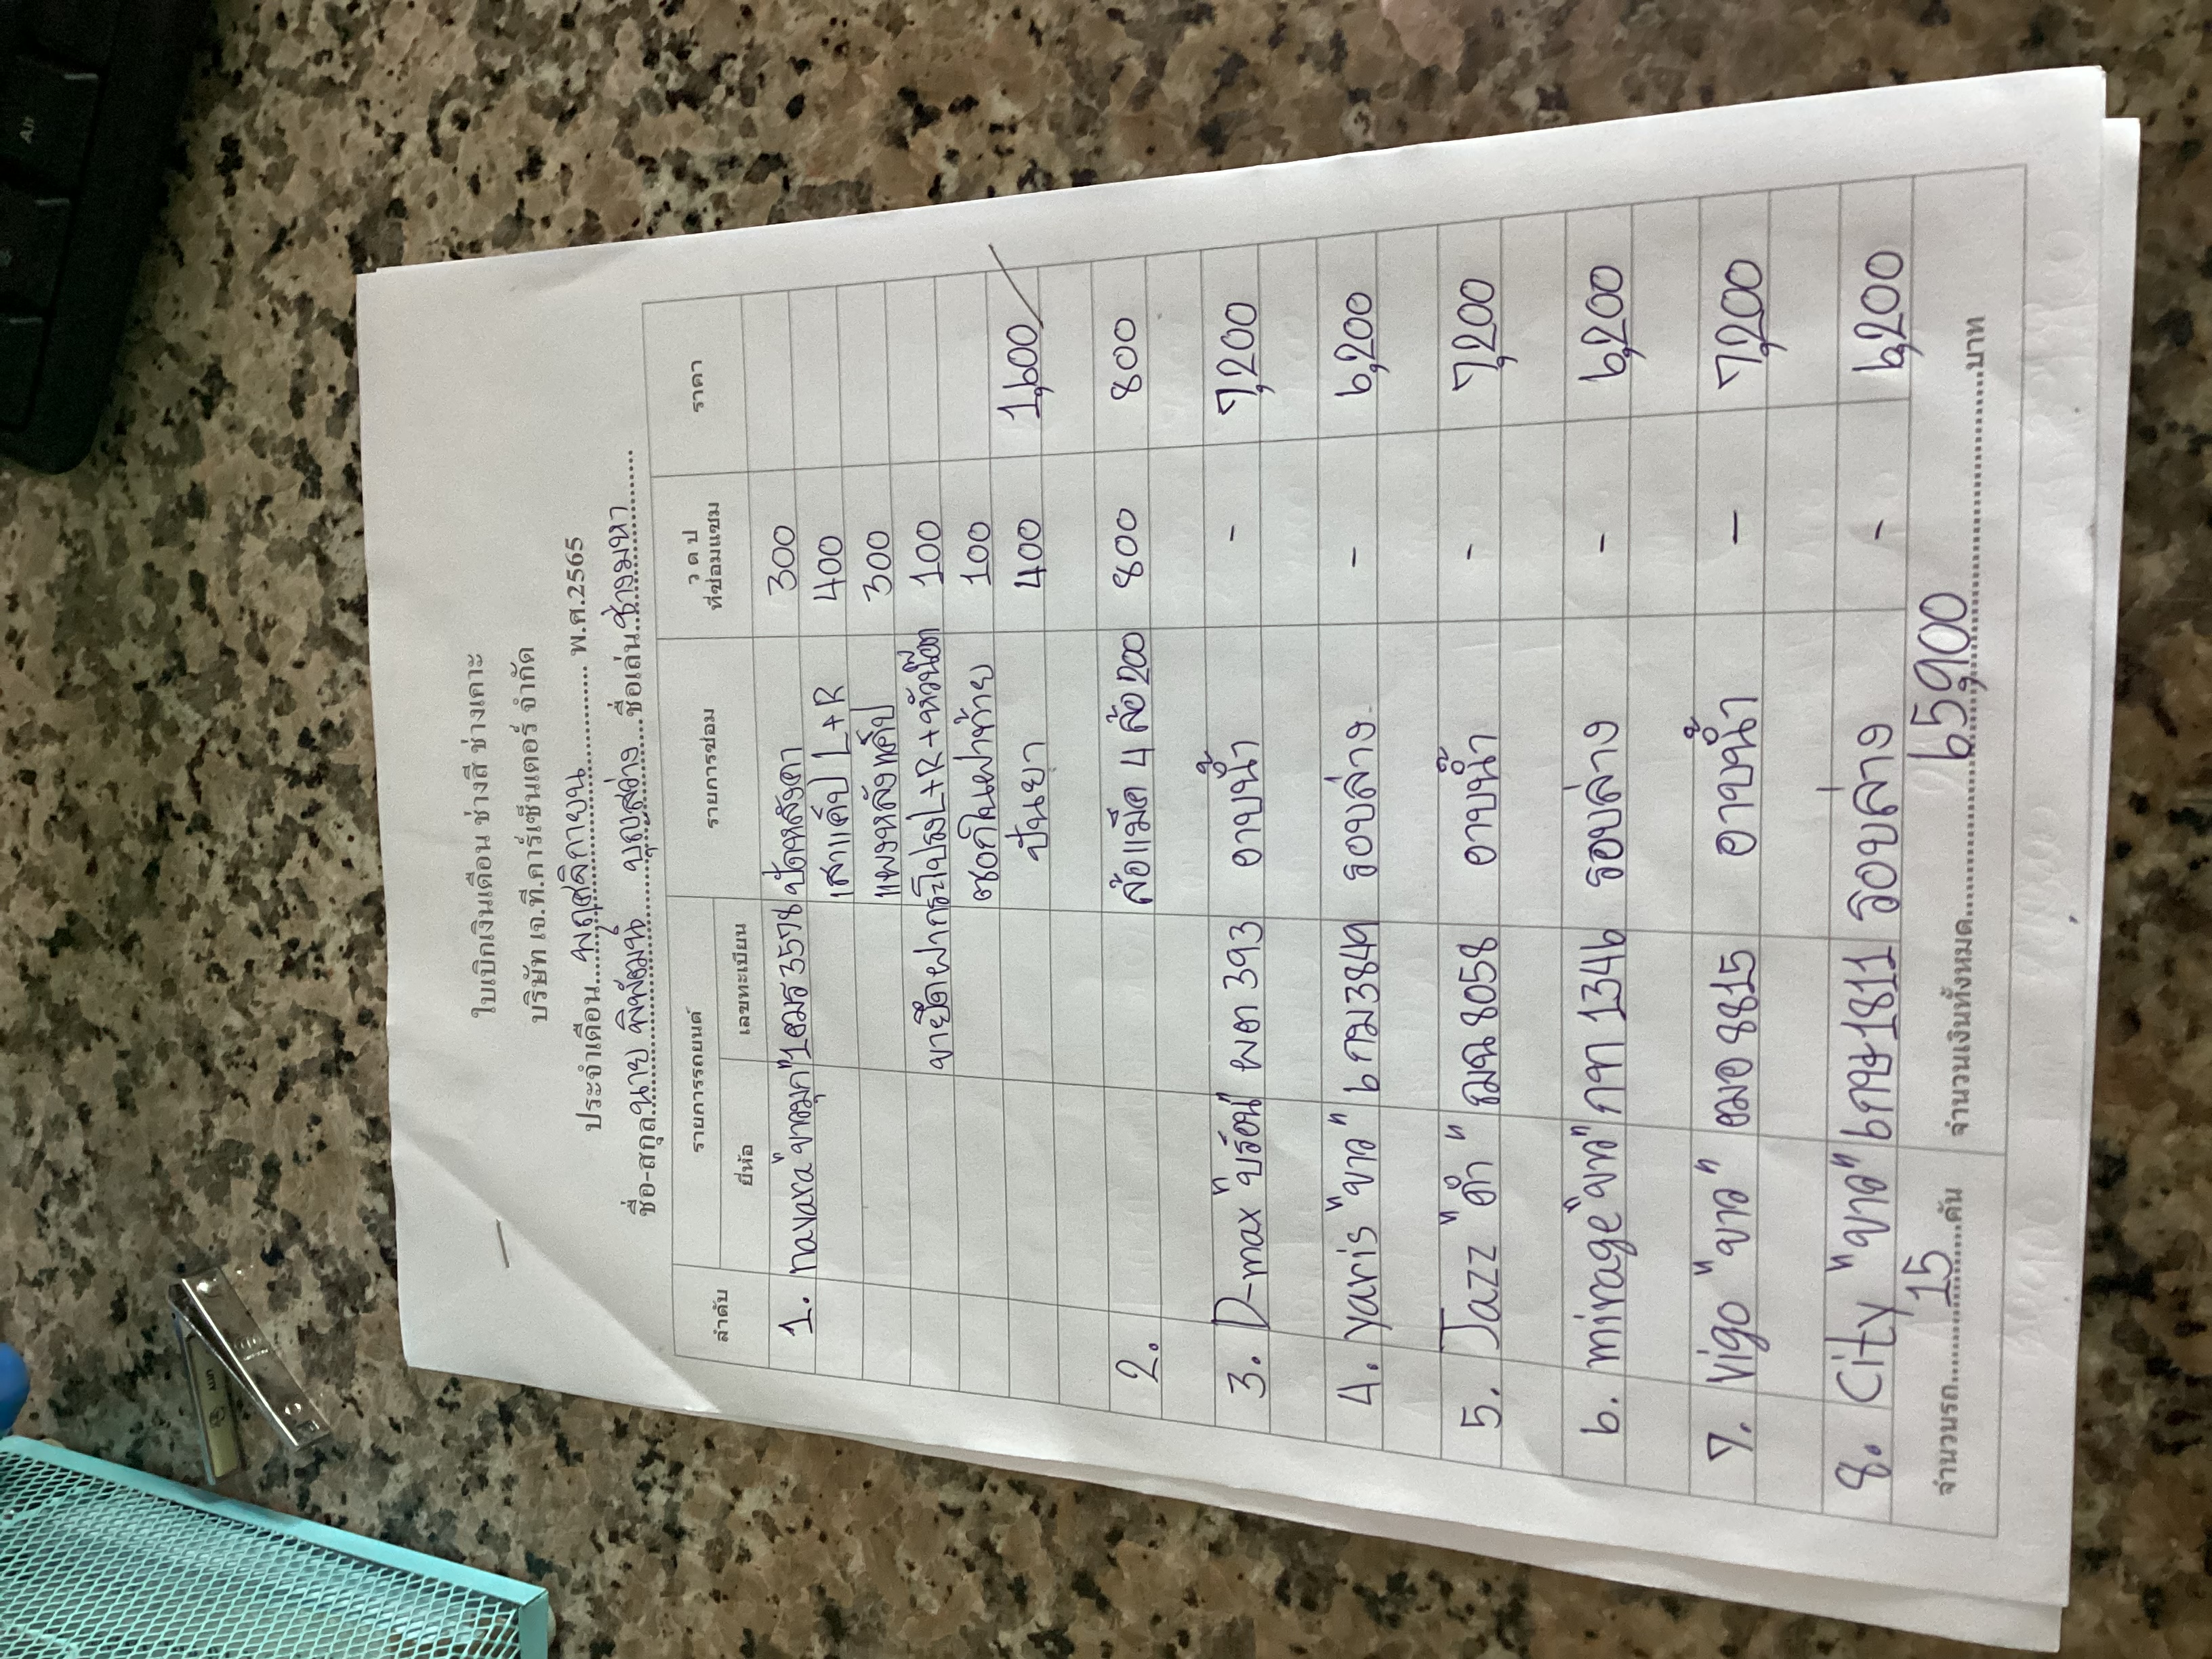 ใบเบิกเงินเดือน ช่างสี ช่างเคาะ
บริษัท เจ.ที.คาร์เซ็นเตอร์ จำกัด
ประจำเดือน....พฤศจิกายน.... พ.ศ.2565
ชื่อ-สกุล..นาย พิพัฒน์ บุญสว่าง...ชื่อเล่น..ช่างมหา
ลำดับ รายการรถยนต์ รายการซ่อม ว ด ป ที่ซ่อมแซม ราคา
ยี่ห้อ เลขทะเบียน
1. navara "ขาวมุก" 1ฒร 3578 ปัดหลังคา 300
เสาแค๊ป L+R 400
แผงหลังแค๊ป 300
ขายึดฝากระโปรงL+R+หัวน๊อต 100
ซอกในฝาท้าย 100
ปั่นยา 400 1,600
2. ล้อแม็ค 4 ล้อ 200 800 800
3. D-max "บรอน" ผต 393 อาบน้ำ - 7,200
4. yaris "ขาว" 6กม 3849 รอบล่าง - 6,200
5. Jazz "ดำ" ฌฉ 8058 อาบน้ำ - 7,200
6. mirage "ขาว" กท 1346 รอบล่าง - 6,200
7. vigo "ขาว" ฒอ 8815 อาบน้ำ - 7,200
8. City "ขาว" 6กษ 1811 รอบล่าง - 6,200
จำนวนรถ....15....คัน จำนวนเงินทั้งหมด....65,900....บาท